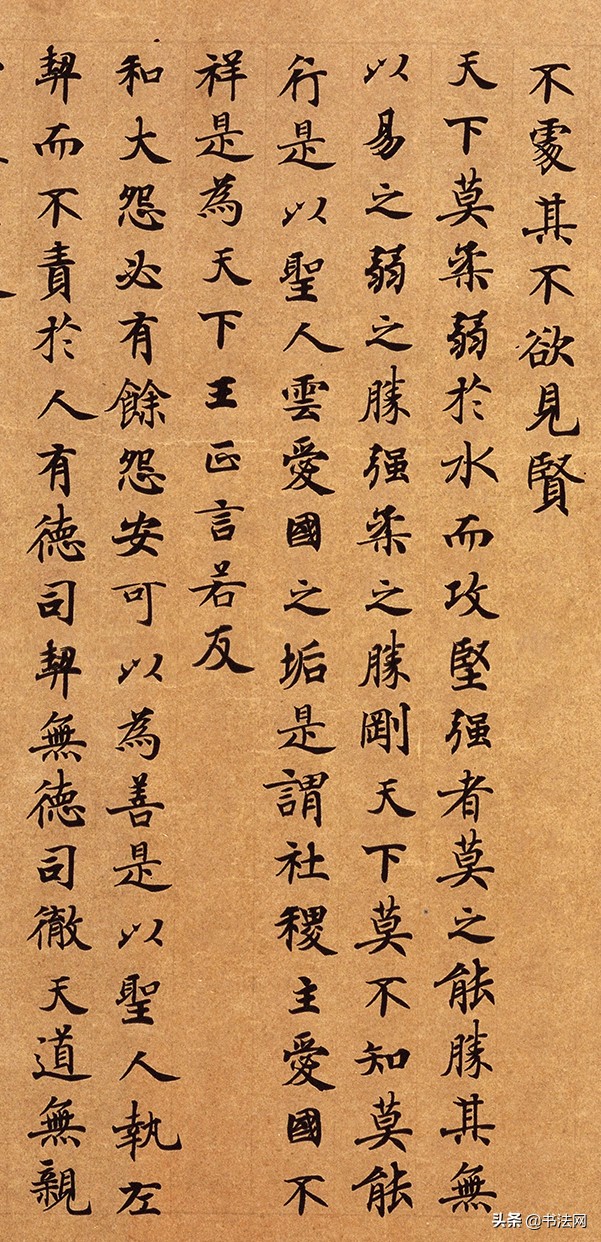 不處其不欲見賢
天下莫柔弱於水而攻堅强者莫之能勝其無
以易之弱之勝强柔之勝剛天下莫不知莫能
行是以聖人雲愛國之垢是謂社稷主愛國不
祥是為天下王正言若反
和大怨必有餘怨安可以為善是以聖人執左
契而不責於人有德司契無德司徹天道無親
头条 @书法网